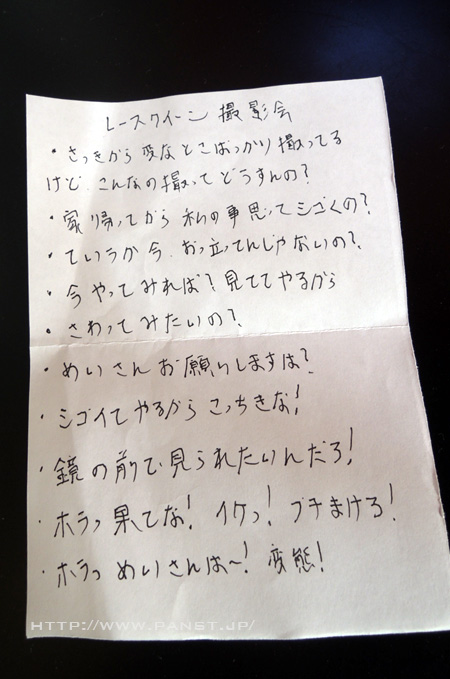 レースクイーン 撮影会
・さっきから 変なとこばっかり 撮ってる
けど、こんなの撮って どうすんの？
・家帰ってから 私の事思ってシゴくの？
・ていうか今、おっ立ってんじゃないの？
・今 やってみれば？ 見ててやるから
・さわってみたいの？
・めいさん お願いしますは？
・シゴイてやるから こっちきな！
・鏡の前で 見られたいんだろ！
・ホラっ 果てな！ イケっ！ ブチまけろ！
・ホラっ めいさんは〜！ 変態！
HTTP://WWW.PANST.JP/